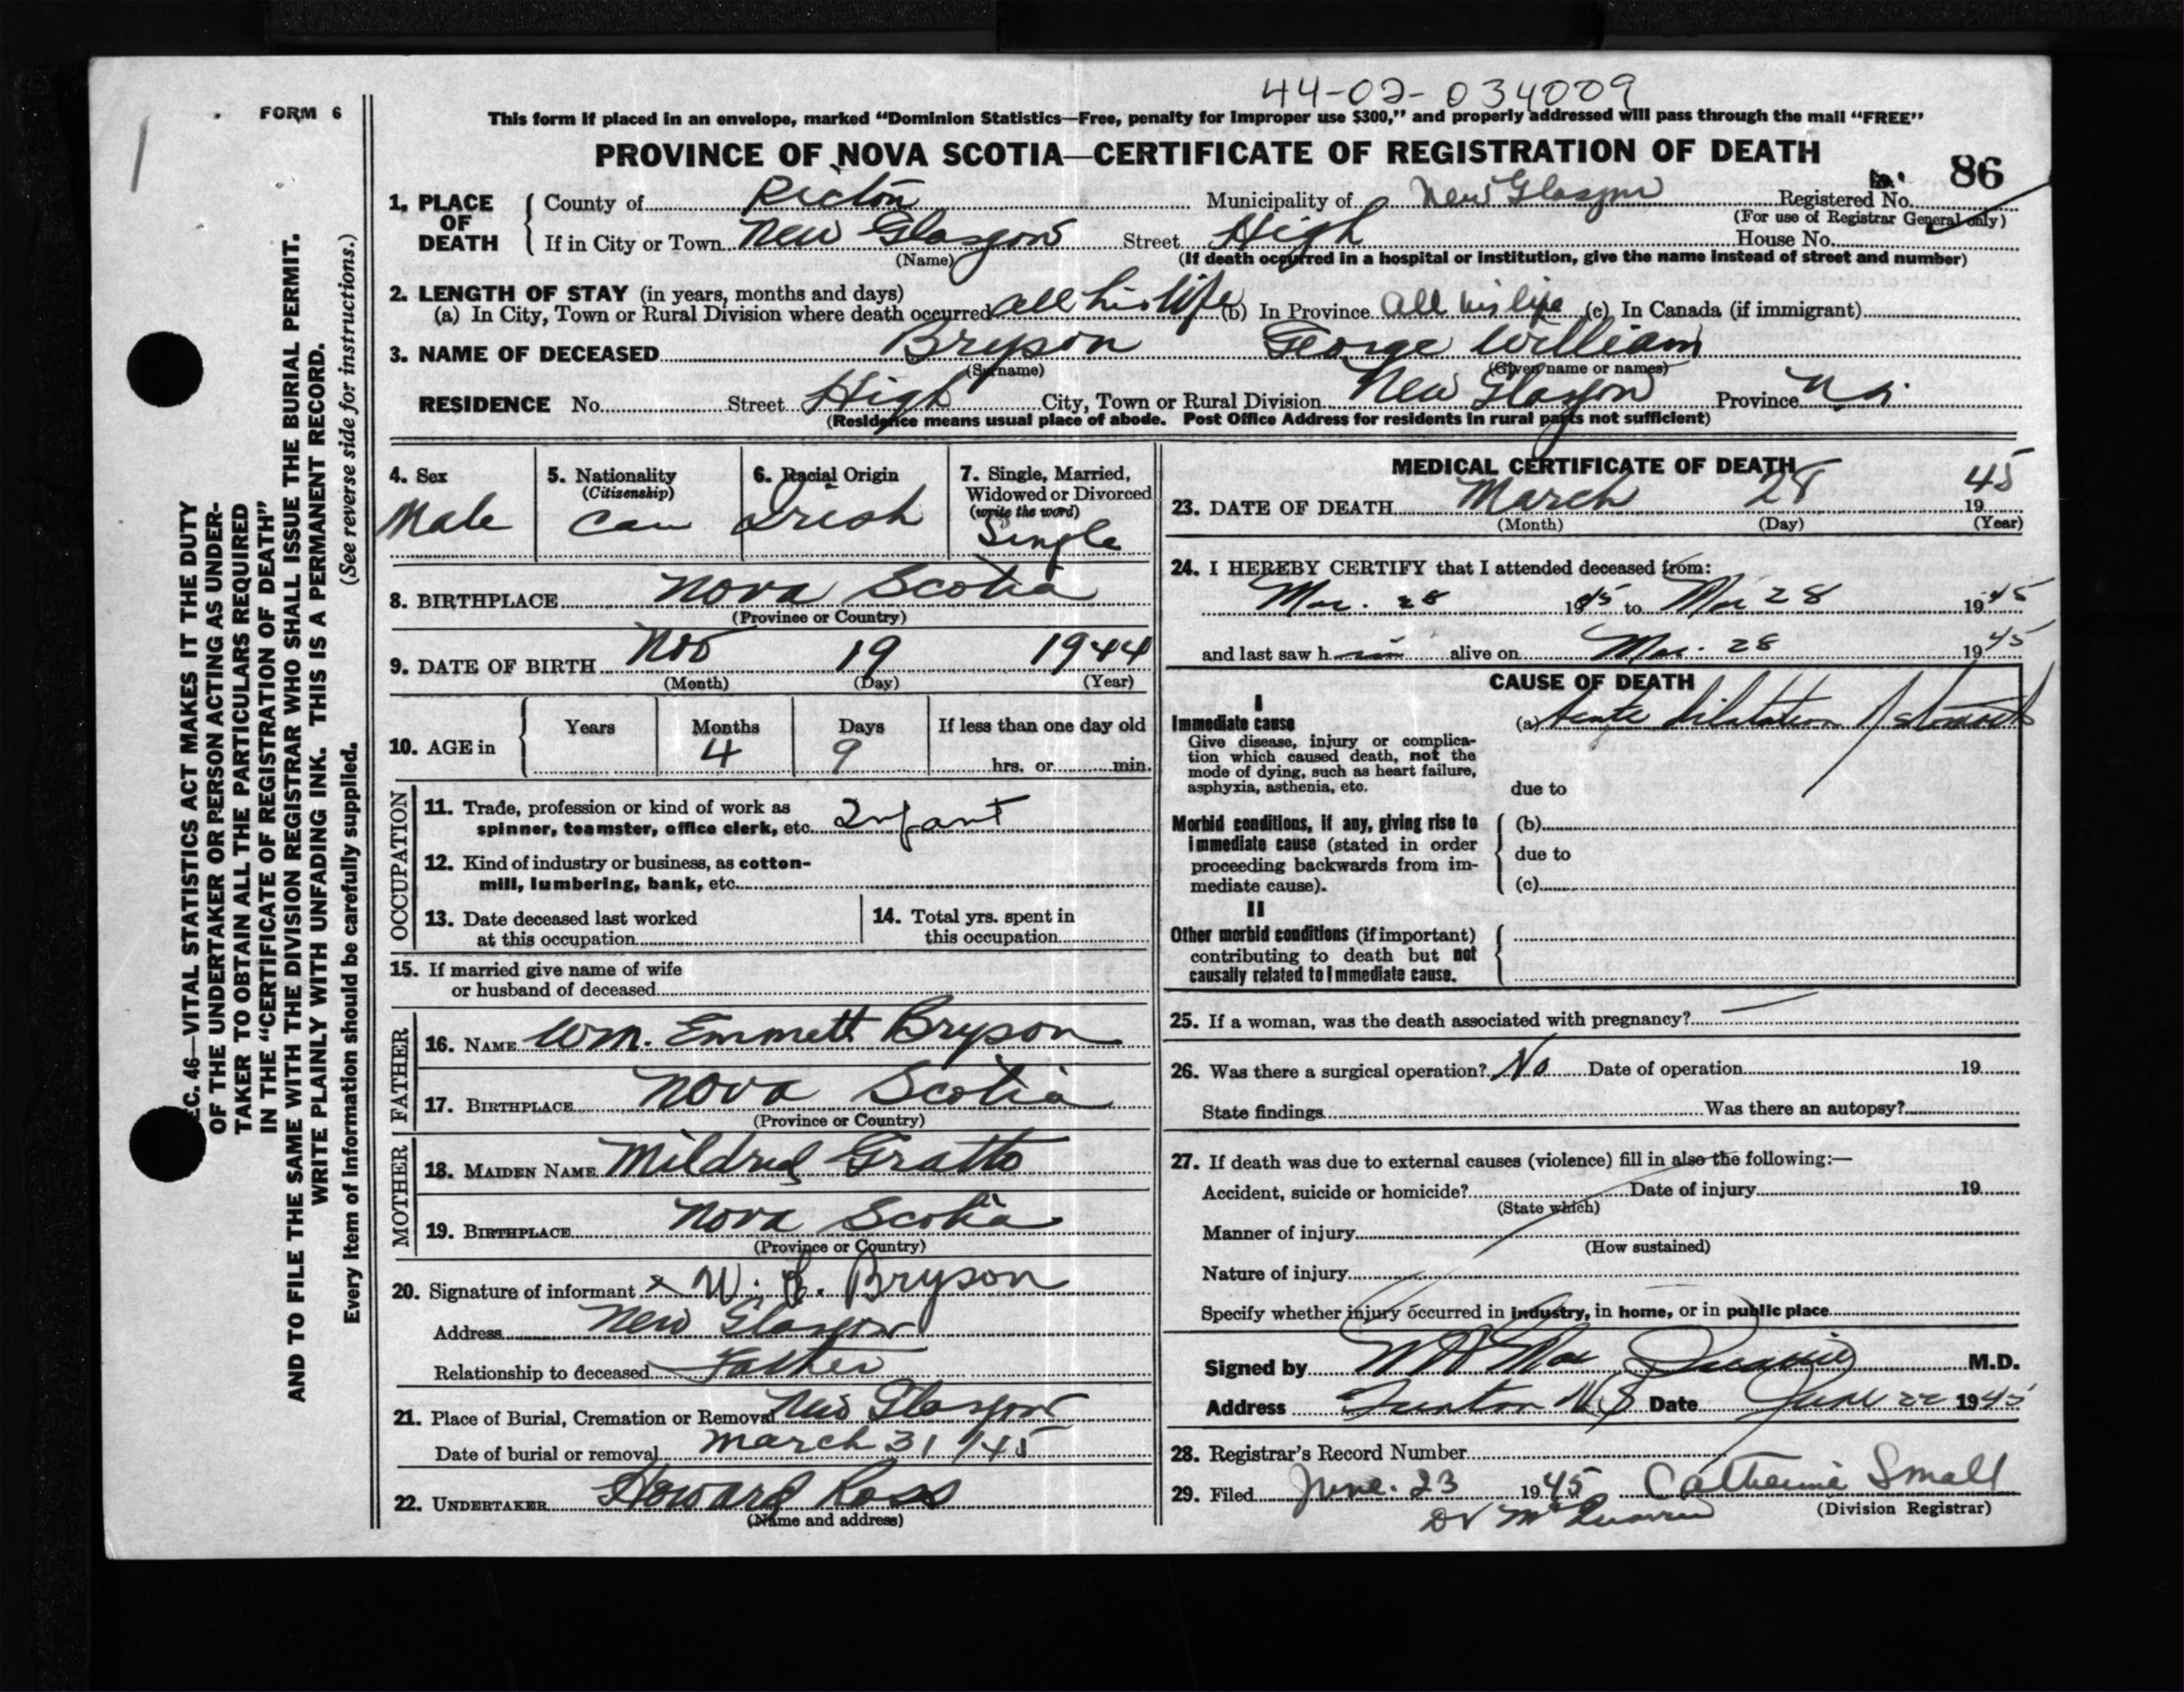 44-02-034009
FORM 6
This form if placed in an envelope, marked "Dominion Statistics—Free, penalty for improper use $300," and properly addressed will pass through the mail "FREE"
PROVINCE OF NOVA SCOTIA—CERTIFICATE OF REGISTRATION OF DEATH
86
1. PLACE OF DEATH
County of Pictou Municipality of New Glasgow Registered No.
(For use of Registrar General only)
If in City or Town New Glasgow Street High House No.
(Name) (If death occurred in a hospital or institution, give the name instead of street and number)
2. LENGTH OF STAY (in years, months and days)
(a) In City, Town or Rural Division where death occurred all his life (b) In Province All his life (c) In Canada (if immigrant)
3. NAME OF DECEASED Bryson George William
(Surname) (Given name or names)
RESIDENCE No. Street High City, Town or Rural Division New Glasgow Province N.S.
(Residence means usual place of abode. Post Office Address for residents in rural parts not sufficient)
4. Sex Male
5. Nationality (Citizenship) Can
6. Racial Origin Irish
7. Single, Married, Widowed or Divorced (write the word) Single
8. BIRTHPLACE Nova Scotia
(Province or Country)
9. DATE OF BIRTH Nov 19 1944
(Month) (Day) (Year)
10. AGE in Years Months 4 Days 9 If less than one day old
hrs. or min.
OCCUPATION
11. Trade, profession or kind of work as spinner, teamster, office clerk, etc. Infant
12. Kind of industry or business, as cotton-mill, lumbering, bank, etc.
13. Date deceased last worked at this occupation
14. Total yrs. spent in this occupation
15. If married give name of wife or husband of deceased
FATHER
16. NAME Wm. Emmett Bryson
17. BIRTHPLACE Nova Scotia
(Province or Country)
MOTHER
18. MAIDEN NAME Mildred Gratto
19. BIRTHPLACE Nova Scotia
(Province or Country)
20. Signature of informant x W. E. Bryson
Address New Glasgow
Relationship to deceased Father
21. Place of Burial, Cremation or Removal New Glasgow
Date of burial or removal March 31 / 45
22. UNDERTAKER Howard Ross
(Name and address)
MEDICAL CERTIFICATE OF DEATH
23. DATE OF DEATH March 28 1945
(Month) (Day) (Year)
24. I HEREBY CERTIFY that I attended deceased from:
Mar. 28 1945 to Mar 28 1945
and last saw him alive on Mar. 28 1945
CAUSE OF DEATH
I
Immediate cause
Give disease, injury or complication which caused death, not the mode of dying, such as heart failure, asphyxia, asthenia, etc.
(a) Acute dilatation of stomach
due to
Morbid conditions, if any, giving rise to immediate cause (stated in order proceeding backwards from immediate cause).
(b)
due to
(c)
II
Other morbid conditions (if important) contributing to death but not causally related to immediate cause.
25. If a woman, was the death associated with pregnancy?
26. Was there a surgical operation? No Date of operation 19
State findings Was there an autopsy?
27. If death was due to external causes (violence) fill in also the following:—
Accident, suicide or homicide? Date of injury 19
(State which)
Manner of injury
(How sustained)
Nature of injury
Specify whether injury occurred in industry, in home, or in public place
Signed by M.D.
Address N.S. Date June 22 1945
28. Registrar's Record Number
29. Filed June. 23 1945 Catherine Small
(Division Registrar)
Dr
SEC. 46—VITAL STATISTICS ACT MAKES IT THE DUTY
OF THE UNDERTAKER OR PERSON ACTING AS UNDER-
TAKER TO OBTAIN ALL THE PARTICULARS REQUIRED
IN THE "CERTIFICATE OF REGISTRATION OF DEATH"
AND TO FILE THE SAME WITH THE DIVISION REGISTRAR WHO SHALL ISSUE THE BURIAL PERMIT.
WRITE PLAINLY WITH UNFADING INK. THIS IS A PERMANENT RECORD.
Every item of information should be carefully supplied. (See reverse side for instructions.)